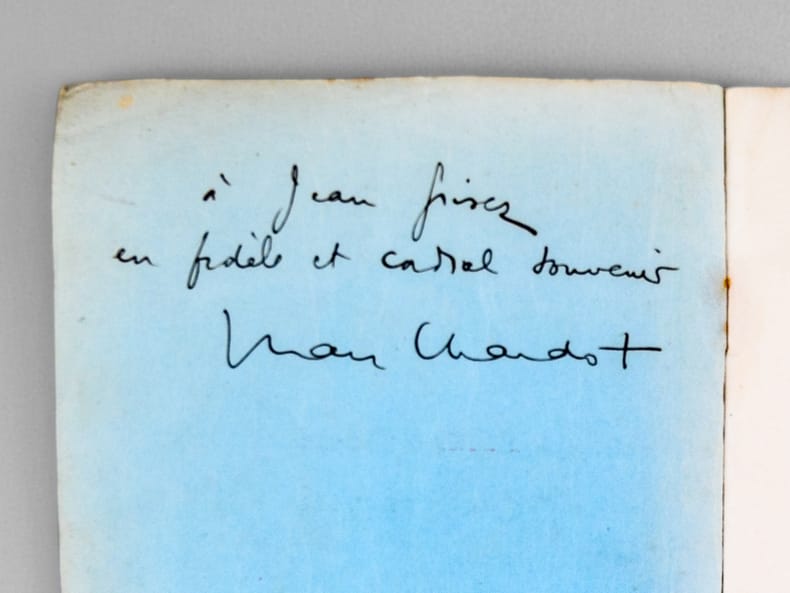 à Jean Grisez
en fidèle et cordial souvenir
Jean Chardot